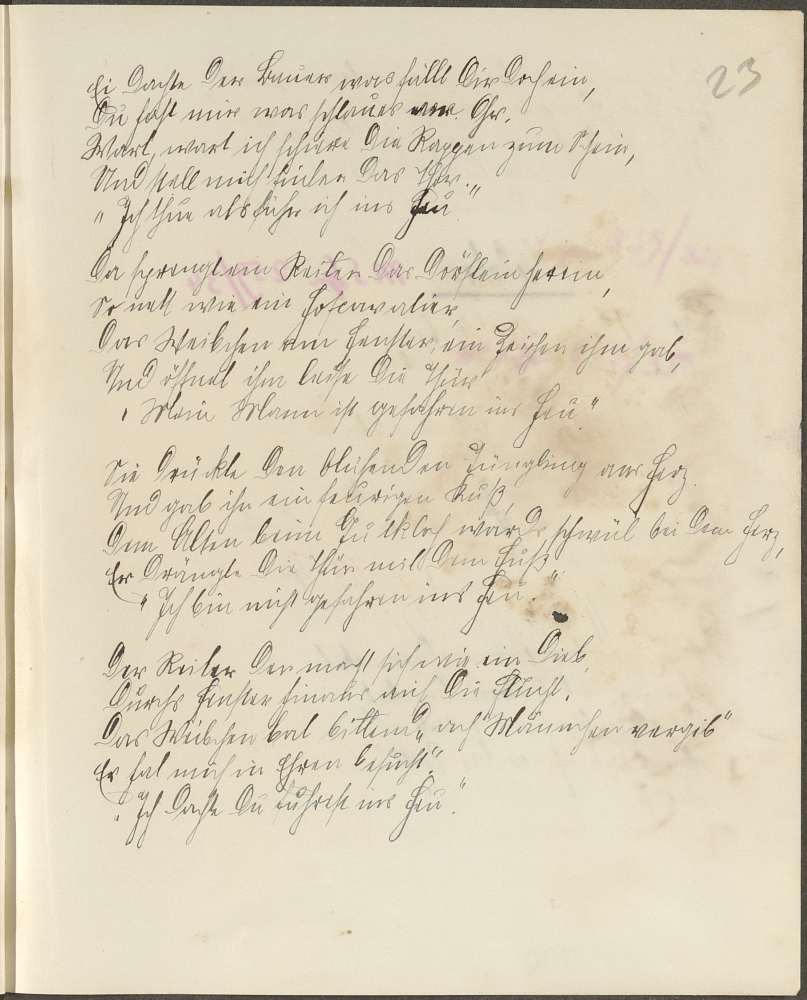 23
Ei dachte der Bauer was fällt dir doch ein,
Du hast mir was schlaues am Ohr.
Wart, wart ich schirre die Rappen zum Schein,
Und stell mich hinter das Thor.
"Ich thue als führ ich ins Heu."
Da sprengt ein Reiter das Dörflein herein,
So nett wie ein Hofcavalier,
Das Weibchen am Fenster, ein Zeichen ihm gab,
Und öffnet ihm leise die Thür
"Mein Mann ist gefahren ins Heu"
Sie drückte den blühenden Jüngling ans Herz.
Und gab ihn ein feurigen Kuß,
Dem Alten beim Gukloch wards schwül bei dem Herz,
Er drängte die Thür mit dem Fuß
"Ich bin nicht gefahren ins Heu."
Der Reiter der macht sich wie ein Dieb,
Durchs Fenster hinaus auf die Flucht.
Das Weibchen bat bittend, "ach Männchen vergib"
Er hat mich in Ehren besucht"
"Ich dachte du fuhrest ins Heu."